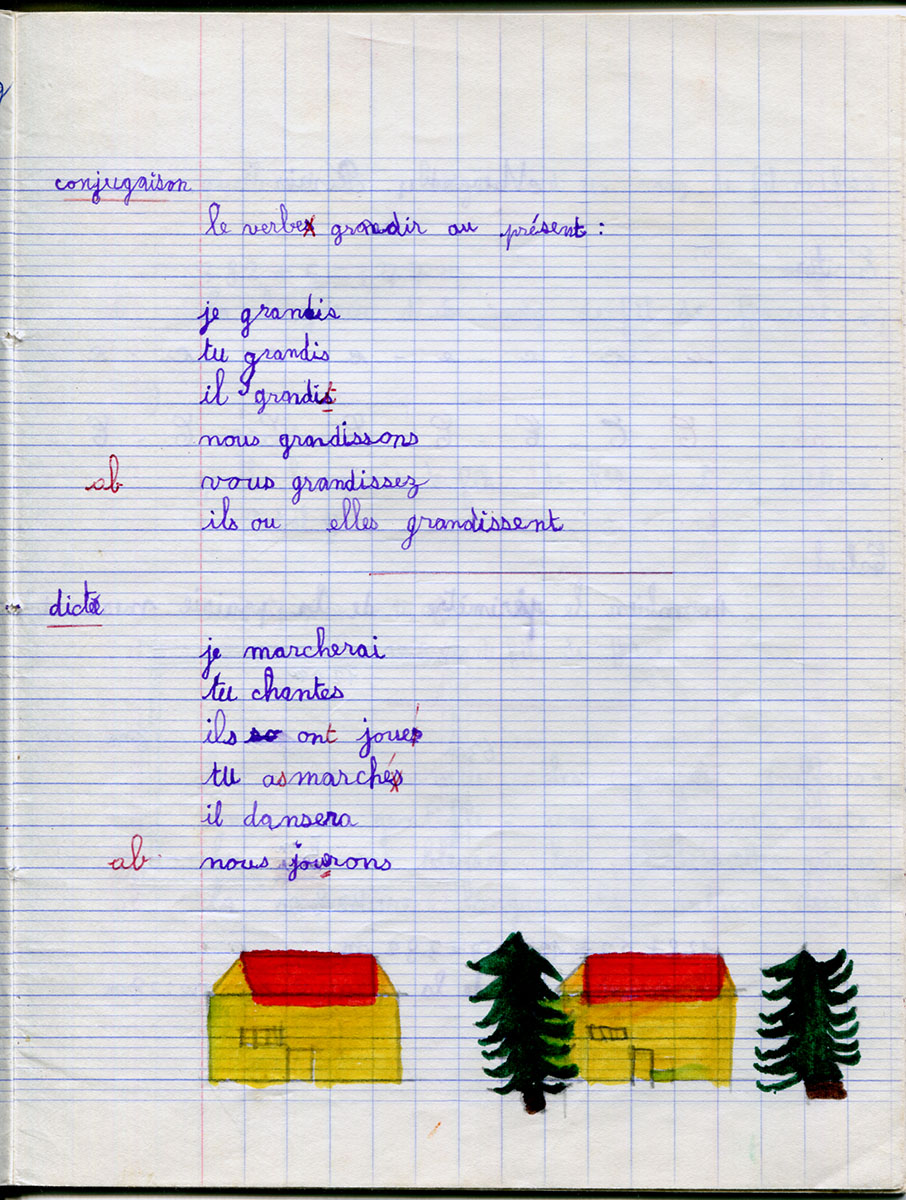 conjugaison
le verbe grandir au présent :
je grandis
tu grandis
il grandit
nous grandissons
ab vous grandissez
ils ou elles grandissent
dicté
je marcherai
tu chantes
ils ont joué
tu as marché
il dansera
ab nous jouerons